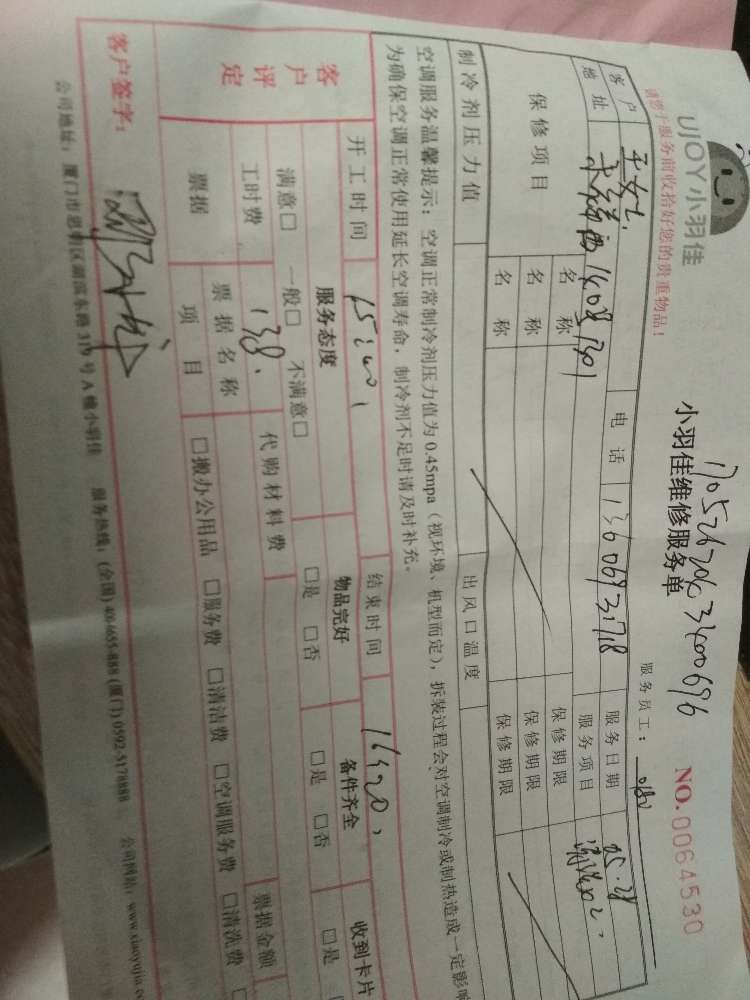 UJOY小羽佳
请您于服务前收拾好您的贵重物品！
小羽佳维修服务单
服务员工：
NO.0064530
客户 王女士 电话 13606931718 服务日期 05.28
地址 服务项目
保修项目 名称 保修期限
名称 保修期限
名称 保修期限
制冷剂压力值 出风口温度
空调服务温馨提示：空调正常制冷剂压力值为0.45mpa（视环境、机型而定），拆装过程会对空调制冷或制热造成一定影响
为确保空调正常使用延长空调寿命，制冷剂不足时请及时补充。
开工时间 15:40 结束时间 16:20
客户评定 服务态度 物品完好 备件齐全 收到卡片
满意□ 一般□ 不满意□ □是 □否 □是 □否 □是
工时费 138. 代购材料费 票据金额
票据 票据名称 □搬办公用品 □服务费 □清洁费 □空调服务费 □清洗费
项目
客户签字：
公司地址：厦门市思明区湖滨东路319号A幢小羽佳 服务热线：(全国) 400-6655-888 (厦门) 0592-5178888 公司网站：www.xiaoyujia.c